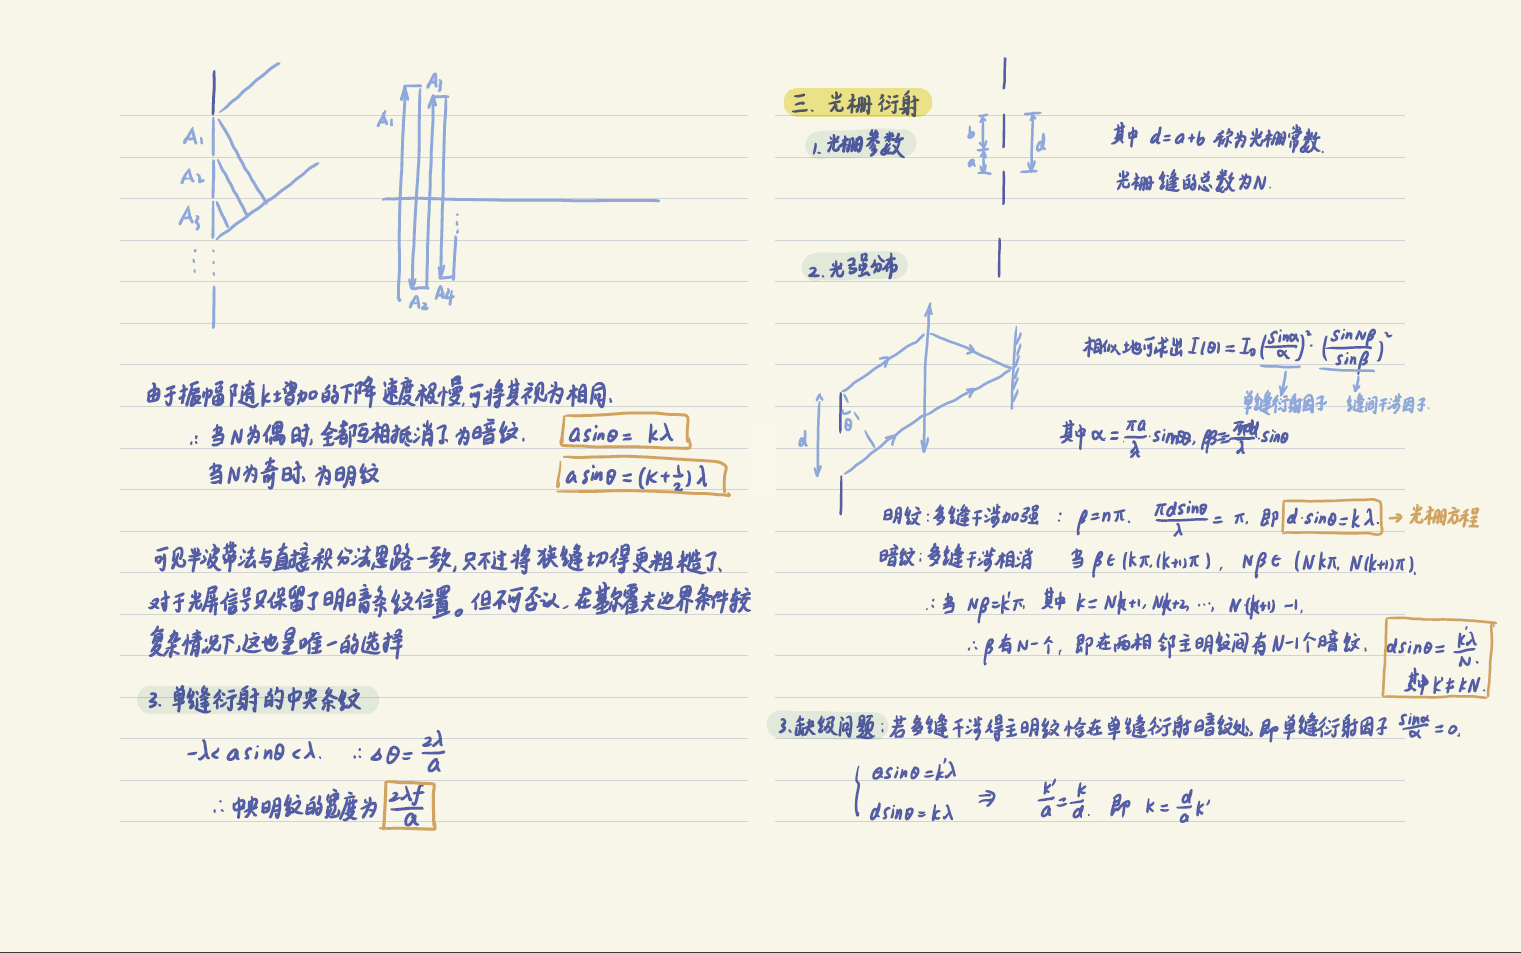 A₁
A₂
A₃
A₁
A₃
A₂
A₄
由于振幅随k增加的下降速度极慢,可将其视为相同.
∴ 当N为偶时,全都互相抵消了为暗纹. asinθ = kλ
当N为奇时,为明纹 asinθ=(k+½)λ
可见半波带法与直接积分法思路一致,只不过将狭缝切得更粗糙了、
对于光屏信号只保留了明暗条纹位置。但不可否认、在基尔霍夫边界条件较
复杂情况下,这也是唯一的选择
3. 单缝衍射的中央条纹
-λ< asinθ <λ. ∴ Δθ= 2λ/a
∴ 中央明纹的宽度为 2λf/a
三. 光栅衍射
1. 光栅参数
b
a
d
其中 d=a+b 称为光栅常数.
光栅缝的总数为N.
2. 光强分布
d
θ
相似地可求出 I(θ) = I₀ (sinα/α)² · (sinNβ/sinβ)²
单缝衍射因子 缝间干涉因子.
其中 α = πa/λ · sinθ, β = πd/λ · sinθ
明纹:多缝干涉加强 : β=nπ. πdsinθ/λ = π. 即 d·sinθ=kλ. → 光栅方程
暗纹:多缝干涉相消 当 β∈(kπ,(k+1)π), Nβ∈ (Nkπ, N(k+1)π).
∴ 当 Nβ=k'π, 其中 k = Nk+1, Nk+2, …, N(k+1) -1,
∴ β有N-1个, 即在两相邻主明纹间有N-1个暗纹. dsinθ = k'λ/N.
其中k'≠kN.
3.缺级问题:若多缝干涉得主明纹恰在单缝衍射暗纹处,即单缝衍射因子 sinα/α =0.
asinθ=k'λ
dsinθ=kλ ⇒ k'/a = k/d. 即 k = d/a k'